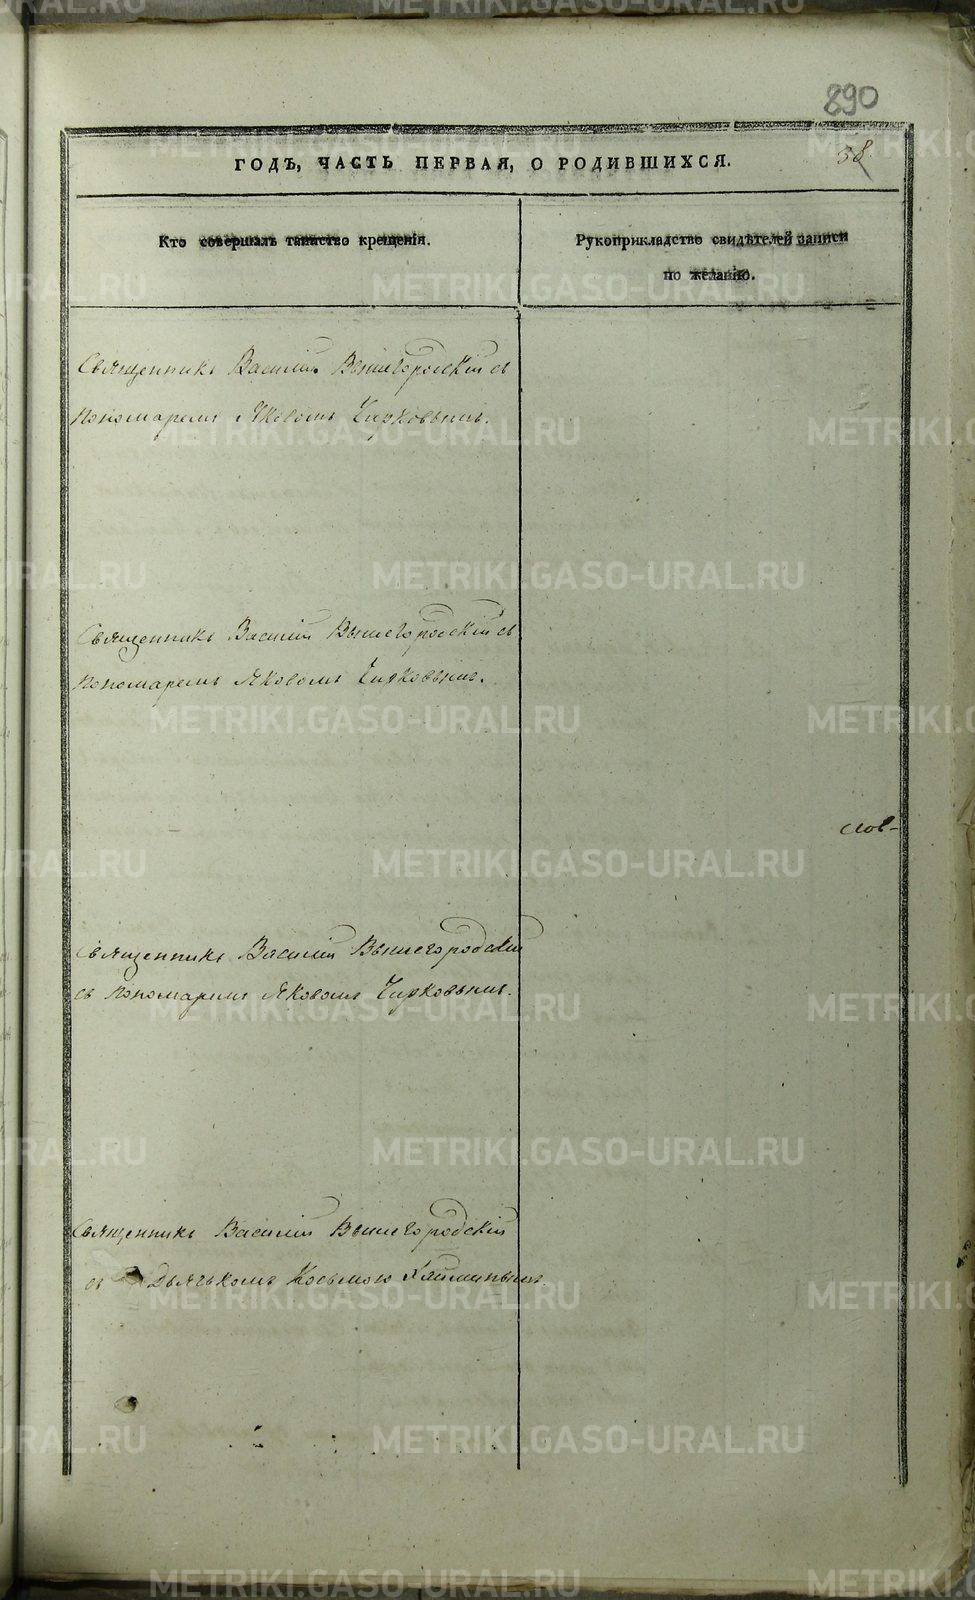 890
38
ГОДЪ, ЧАСТЬ ПЕРВАЯ, О РОДИВШИХСЯ.
Кто совершалъ таинство крещенія.
Рукоприкладство свидѣтелей записи
по желанію.
Священникъ Василій Вышегородскій съ
Пономаремъ Яковомъ Чирковымъ.
Священникъ Василій Вышегородскій съ
Пономаремъ Яковомъ Чирковымъ.
Священникъ Василій Вышегородскій
съ Пономаремъ Яковомъ Чирковымъ.
Священникъ Василій Вышегородскій
съ Дьячькомъ Косьмою
METRIKI.GASO-URAL.RU